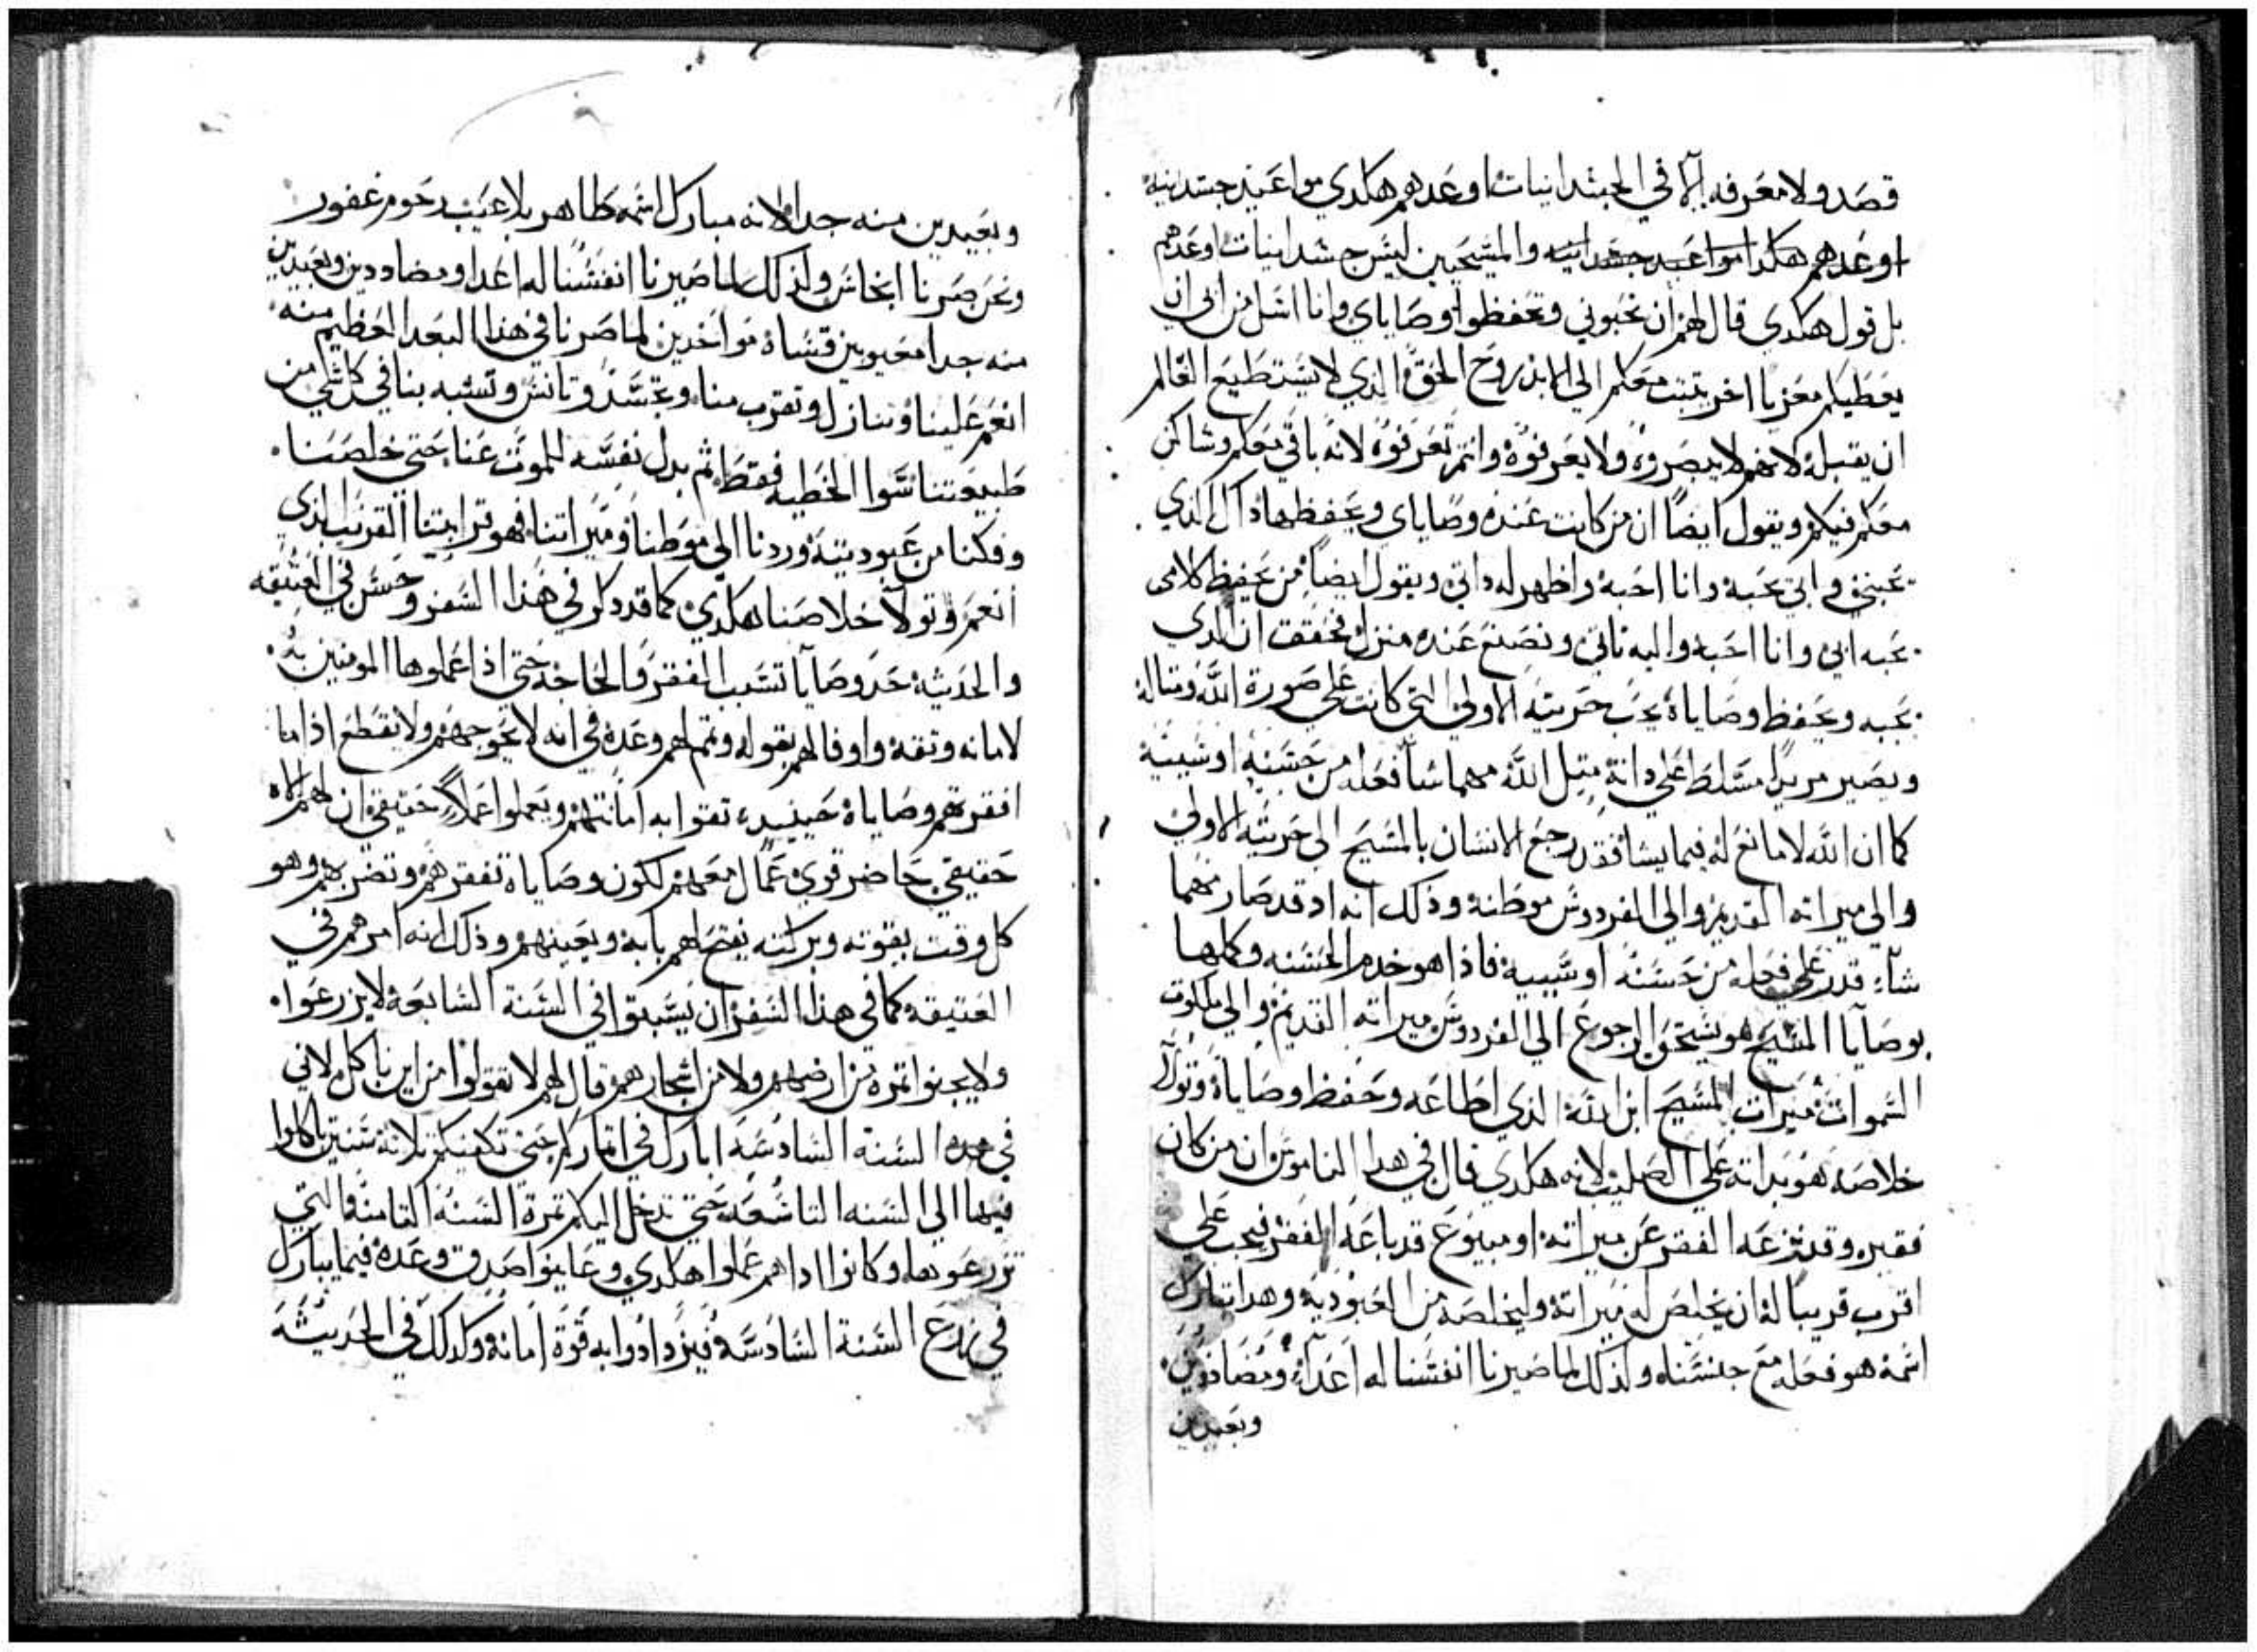 قصد ولا معرفه الا في الجسدانيات اوعدهم هكدي مواعيد جسدنيه
اوعدهم هكدا مواعيد جسدانيه والمسيحيين ليس جسدانيات اوعدهم
بل قول هكدي قال لهم ان تحبوني وتحفظوا وصاياي وانا اسل من ابي ان
يعطيكم معزيا اخر يتبت معكم الى الابد روح الحق الذي لا يستطيع العالم
ان يقبله لانهم لا يبصروه ولا يعرفوه وانتم تعرفوه لانه باقي معكم وساكن
معكم فيكم ويقول ايضا ان من كانت عنده وصاياي ويحفظها داك الذي
يحبني وابي يحبه وانا احبه واظهر له داتي ويقول ايضا من يحفظ كلامي
يحبه ابي وانا احبه واليه ناتي ونصنع عنده منزل فحقق ان الذي
يحبه ويحفظ وصاياه يحب حريته الاولى التي كانت على صورة الله ومتاله
ويصير مريدا مسلط على داته متل الله مهما شا فعله من حسنه او سييه
كما ان الله لا مانع له فيما يشا فقد رجع الانسان بالمسيح الى حريته الاولى
والى ميراته القديم والى الفردوس موطنه وذلك انه اد قد صار مهما
شاء قدر على فعله من حسنه او سييه فاذا هو خدم الحسنه وكملها
بوصايا المسيح هو يستحق الرجوع الى الفردوس ميراته القديم والى ملكوت
السموات ميرات المسيح ابن الله الذي اطاعه وحفظ وصاياه وتولا
خلاصه هو بداته على الصليب لانه هكدي قال في هدا الناموس ان من كان
فقيره وقد نزعه الفقر عن ميراته او مبيوع قد باعه الفقر فيجب على
اقرب قريبا له ان يخلص له ميراته وليخلصه من العبوديه وهدا تبارك
اسمه هو فعله مع جنسنا ولذلك لما صيرنا انفسنا له اعداء ومضاددين
وبعيدين
وبعيدين منه جدا لانه مبارك اسمه طاهر بلا عيب رحوم غفور
ونحن صرنا انجاس ولذلك لما صيرنا انفسنا له اعدا ومضاددين وبعيدين
منه جدا معيوبين قساة مواخدين لما صرنا في هذا البعد العظيم منه
انعم علينا وتنازل وتقرب منا وتجسد وتانس وتشبه بنا في كل شي من
طبيعتنا سوا الخطيه فقط ثم بدل نفسه للموت عنا حتى خلصنا
وفكنا من عبوديته وردنا الى موطنا وميراتنا فهو قرابتنا القريب الذي
انعم وتولا خلاصنا هكدي كما قد دكر في هذا السفر وحسن في العتيقه
والحديثه حد وصايا تسبب الفقر والحاجه حتى اذا عملوها المومنين به
لامانه وتقه واوفا لهم بقوله وتم لهم وعده في انه لا يحوجهم ولا يقطع اذا ما
افقرتهم وصاياه حينيد تقوا به امانتهم ويعملوا عملا حقيقي ان لهم الاه
حقيقي حاضر قوي عمال معهم لكون وصاياه تفقرهم وتضر بهم وهو
كل وقت بقوته وبركته يفتح لهم بابه ويعينهم وذلك انه امرهم في
العتيقه كما في هذا السفر ان يسبتوا في السنة السابعه لا يزرعوا
ولا يجنوا تمرة من ارضهم ولا من اشجارهم قال لهم لا تقولوا من اين ناكل لاني
في هده السنه السادسه ابارك في اتماركم حتى تكفيكم تلاتة سنين تاكلوا
فيها الى السنه التاسعه حتى تدخل اليكم تمرة السنه التامنه التي
تزرعونها وكانوا ادا هم عملوا هكدي وعاينوا صدق وعده فيما يبارك
في زرع السنة السادسه فيزدادوا به قوة امانه وكدلك في الحديثه